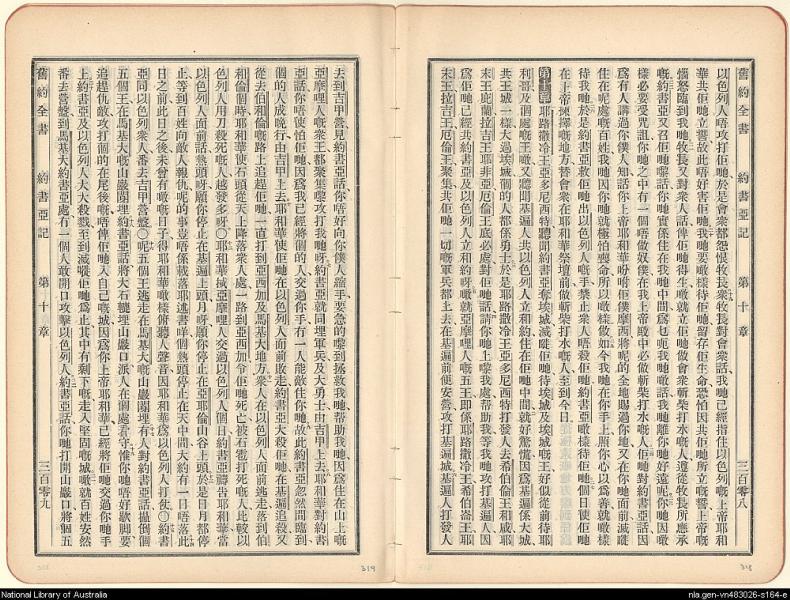 舊約全書 約書亞記 第十章 三百零八
以色列人唔攻打佢哋於是會衆都怨恨牧長衆牧長對會衆話我哋已經指住以色列嘅上帝耶和
華共佢哋立誓故此唔好害佢哋我哋要噉樣待佢哋留存佢生命恐怕因共佢哋所立嘅誓上帝嘅
惱怒臨到我哋牧長又對衆人話俾佢哋得生噉就立佢哋做會衆斬柴打水嘅人遵從牧長所應承
嘅約書亞又召佢哋嚟對佢哋話你哋實係住在我哋中間爲乜呃我哋話我哋離你哋好遠呢你哋因噉
樣必要受咒詛你哋之中有一個唔做奴僕在我上帝殿中必做斬柴打水嘅人佢哋對約書亞話因
爲有人講過你僕人知話你上帝耶和華吩咐佢僕摩西將呢的全地賜過你哋又在你哋面前滅嗮
住在呢處嘅百姓我哋因你哋就極怕喪命所以噉樣做如今我哋在你手上照你心以爲善就噉樣
待我哋於是約書亞救佢哋出以色列人嘅手禁止衆人唔殺佢約書亞噉樣待佢哋個日使佢哋
在上帝揀擇嘅地方替會衆在耶和華祭壇前做斬柴打水嘅人至到今日
第十章耶路撒冷王亞多尼西特聽聞約書亞奪埃城滅嗮佢哋待埃城及埃城嘅王好似從前待耶
利哥及個處嘅王噉又聽聞基遍人共以色列人立和約住在佢中間就好驚慌因爲基遍係大城
共王城一樣大過埃城個的人都係勇士於是耶路撒冷王亞多尼西特打發人去希伯倫王和咸耶
末王庇蘭拉吉王耶非亞厄倫王底必處對佢哋話請你哋上嚟我處帮助我等我哋攻打基遍人因
爲佢哋已經共約書亞及以色列人立和約呀噉就亞摩哩人嘅五王即係耶路撒冷王希伯崙王耶
末王拉吉王厄倫王聚集共佢哋一切嘅軍兵都上去在基遍前便安營攻打基遍城基遍人打發人
318
舊約全書 約書亞記 第十章 三百零九
去到吉甲營見約書亞話你唔好向你僕人縮手要急的嚟到拯救我哋帮助我哋因爲住在山上嘅
亞摩哩人嘅衆王都聚集嚟攻打我哋呀約書亞就同埋軍兵及大勇士由吉甲上去耶和華對約書
亞話你唔使怕佢哋因爲我已經將個的人交過你手有一人能敵住你哋故此約書亞忽然間臨到
個的人成晚行由吉甲上去耶和華使佢哋在以色列人面前敗走約書亞大殺佢哋在基遍追殺又
從去伯和倫嘅路上追趕佢哋一直打到亞西加及馬基大地方衆人在以色列人面前逃走落到伯
和倫個時耶和華使石頭從天上降落衆人處一路到亞西加令佢哋死亡被石雹打死嘅人比較以
色列人用刀殺死嘅人越發多呀耶和華將亞摩哩人交過以色列人個日約書亞禱告耶和華當
以色列人面前話熱頭呀願你停止在基遍上頭月呀願你停止在亞耶倫山谷上頭於是日月都停
止等到百姓向敵人報仇呢的事豈唔係載落耶述書咩個熱頭停止在天中間大約有一日唔落此
日之前此日之後未曾有噉嘅日子得耶和華噉樣俯聽人聲音因耶和華爲以色列人打仗約書
亞同以色列衆人番去吉甲營盤呢五個王逃走在馬基大嘅山巖閣埋有人對約書亞話搵倒個
五個王在馬基大嘅山巖閣埋約書亞話將大石轆埋山巖口派人在個處看守惟你哋唔好歇脚要
追趕仇敵攻打個的在尾後嘅唔俾佢哋入自己嘅城因爲你上帝耶和華已經將佢哋交過你哋手
上約書亞及以色列人大大殺戮至到滅嗮佢哋爲止其中有剩下嘅走入堅固嘅城噉就百姓安然
番去營盤到馬基大約書亞處有一個人敢開口攻擊以色列人約書亞話你哋打開山巖口將個五
319
National Library of Australia
nla.gen-vn483026-s164-e